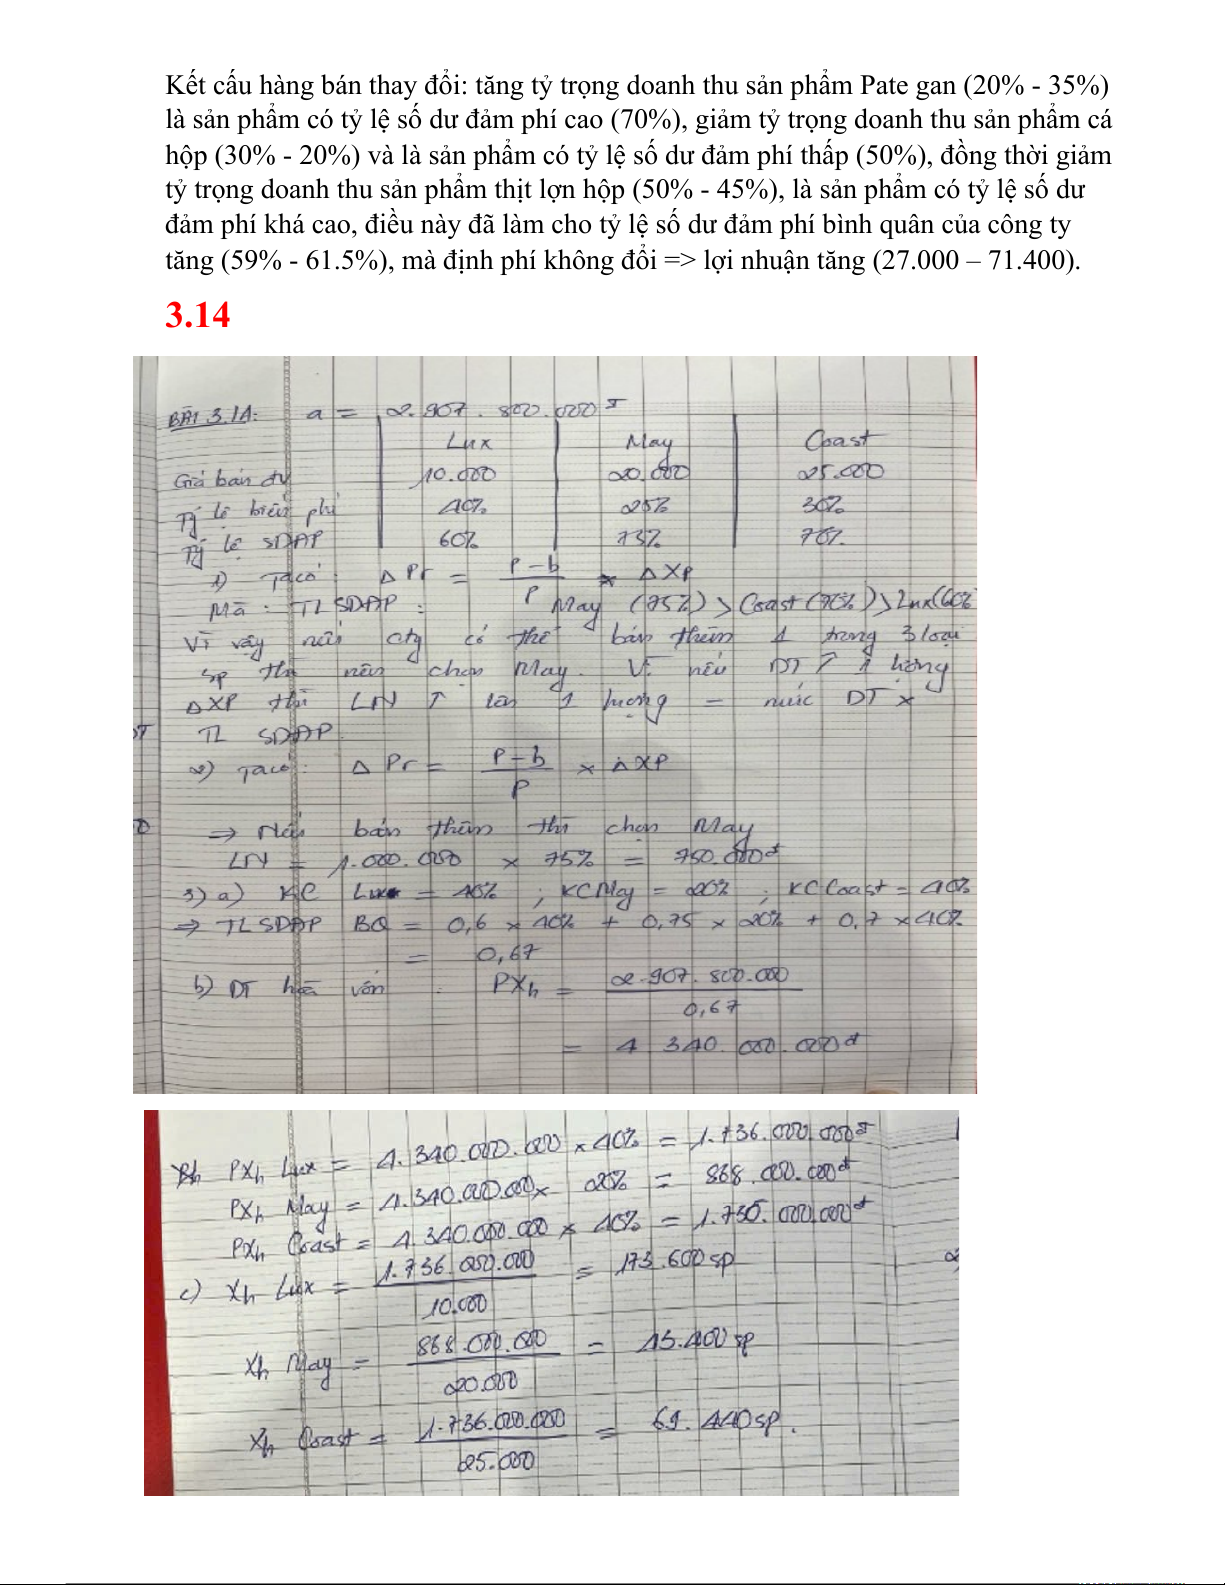 Kết cấu hàng bán thay đổi: tăng tỷ trọng doanh thu sản phẩm Pate gan (20% - 35%)
là sản phẩm có tỷ lệ số dư đảm phí cao (70%), giảm tỷ trọng doanh thu sản phẩm cá
hộp (30% - 20%) và là sản phẩm có tỷ lệ số dư đảm phí thấp (50%), đồng thời giảm
tỷ trọng doanh thu sản phẩm thịt lợn hộp (50% - 45%), là sản phẩm có tỷ lệ số dư
đảm phí khá cao, điều này đã làm cho tỷ lệ số dư đảm phí bình quân của công ty
tăng (59% - 61.5%), mà định phí không đổi => lợi nhuận tăng (27.000 – 71.400).
3.14
BÀI 3.14: a = 2.907.800.000đ
Lux May Coast
Giá bán đv 10.000 20.000 25.000
Tỷ lệ biến phí 40% 25% 30%
Tỷ lệ SDĐP 60% 75% 70%
1) Ta có: Δ Pr = P - b / P × Δ XP
Mà: TL SDĐP: May (75%) > Coast (70%) > Lux (60%
Vì vậy nếu cty có thể bán thêm 1 trong 3 loại
sp thì nên chọn May. Vì nếu DT ↑ 1 lượng
Δ XP thì LN ↑ lên 1 lượng = mức DT ×
TL SDĐP
2) Ta có: Δ Pr = P - b / P × Δ XP
⇒ Nếu bán thêm thì chọn May
LN = 1.000.000 × 75% = 750.000đ
3) a) KC Lux = 40% ; KC May = 20% ; KC Coast = 40%
⇒ TL SDĐP BQ = 0,6 × 40% + 0,75 × 20% + 0,7 × 40%
= 0,67
b) DT hòa vốn : PXh = 2.907.800.000 / 0,67
= 4.340.000.000đ
PXh Lux = 4.340.000.000 × 40% = 1.736.000.000đ
PXh May = 4.340.000.000 × 20% = 868.000.000đ
PXh Coast = 4.340.000.000 × 40% = 1.736.000.000đ
c) Xh Lux = 1.736.000.000 / 10.000 = 173.600 sp
Xh May = 868.000.000 / 20.000 = 43.400 sp
Xh Coast = 1.736.000.000 / 25.000 = 69.440 sp.